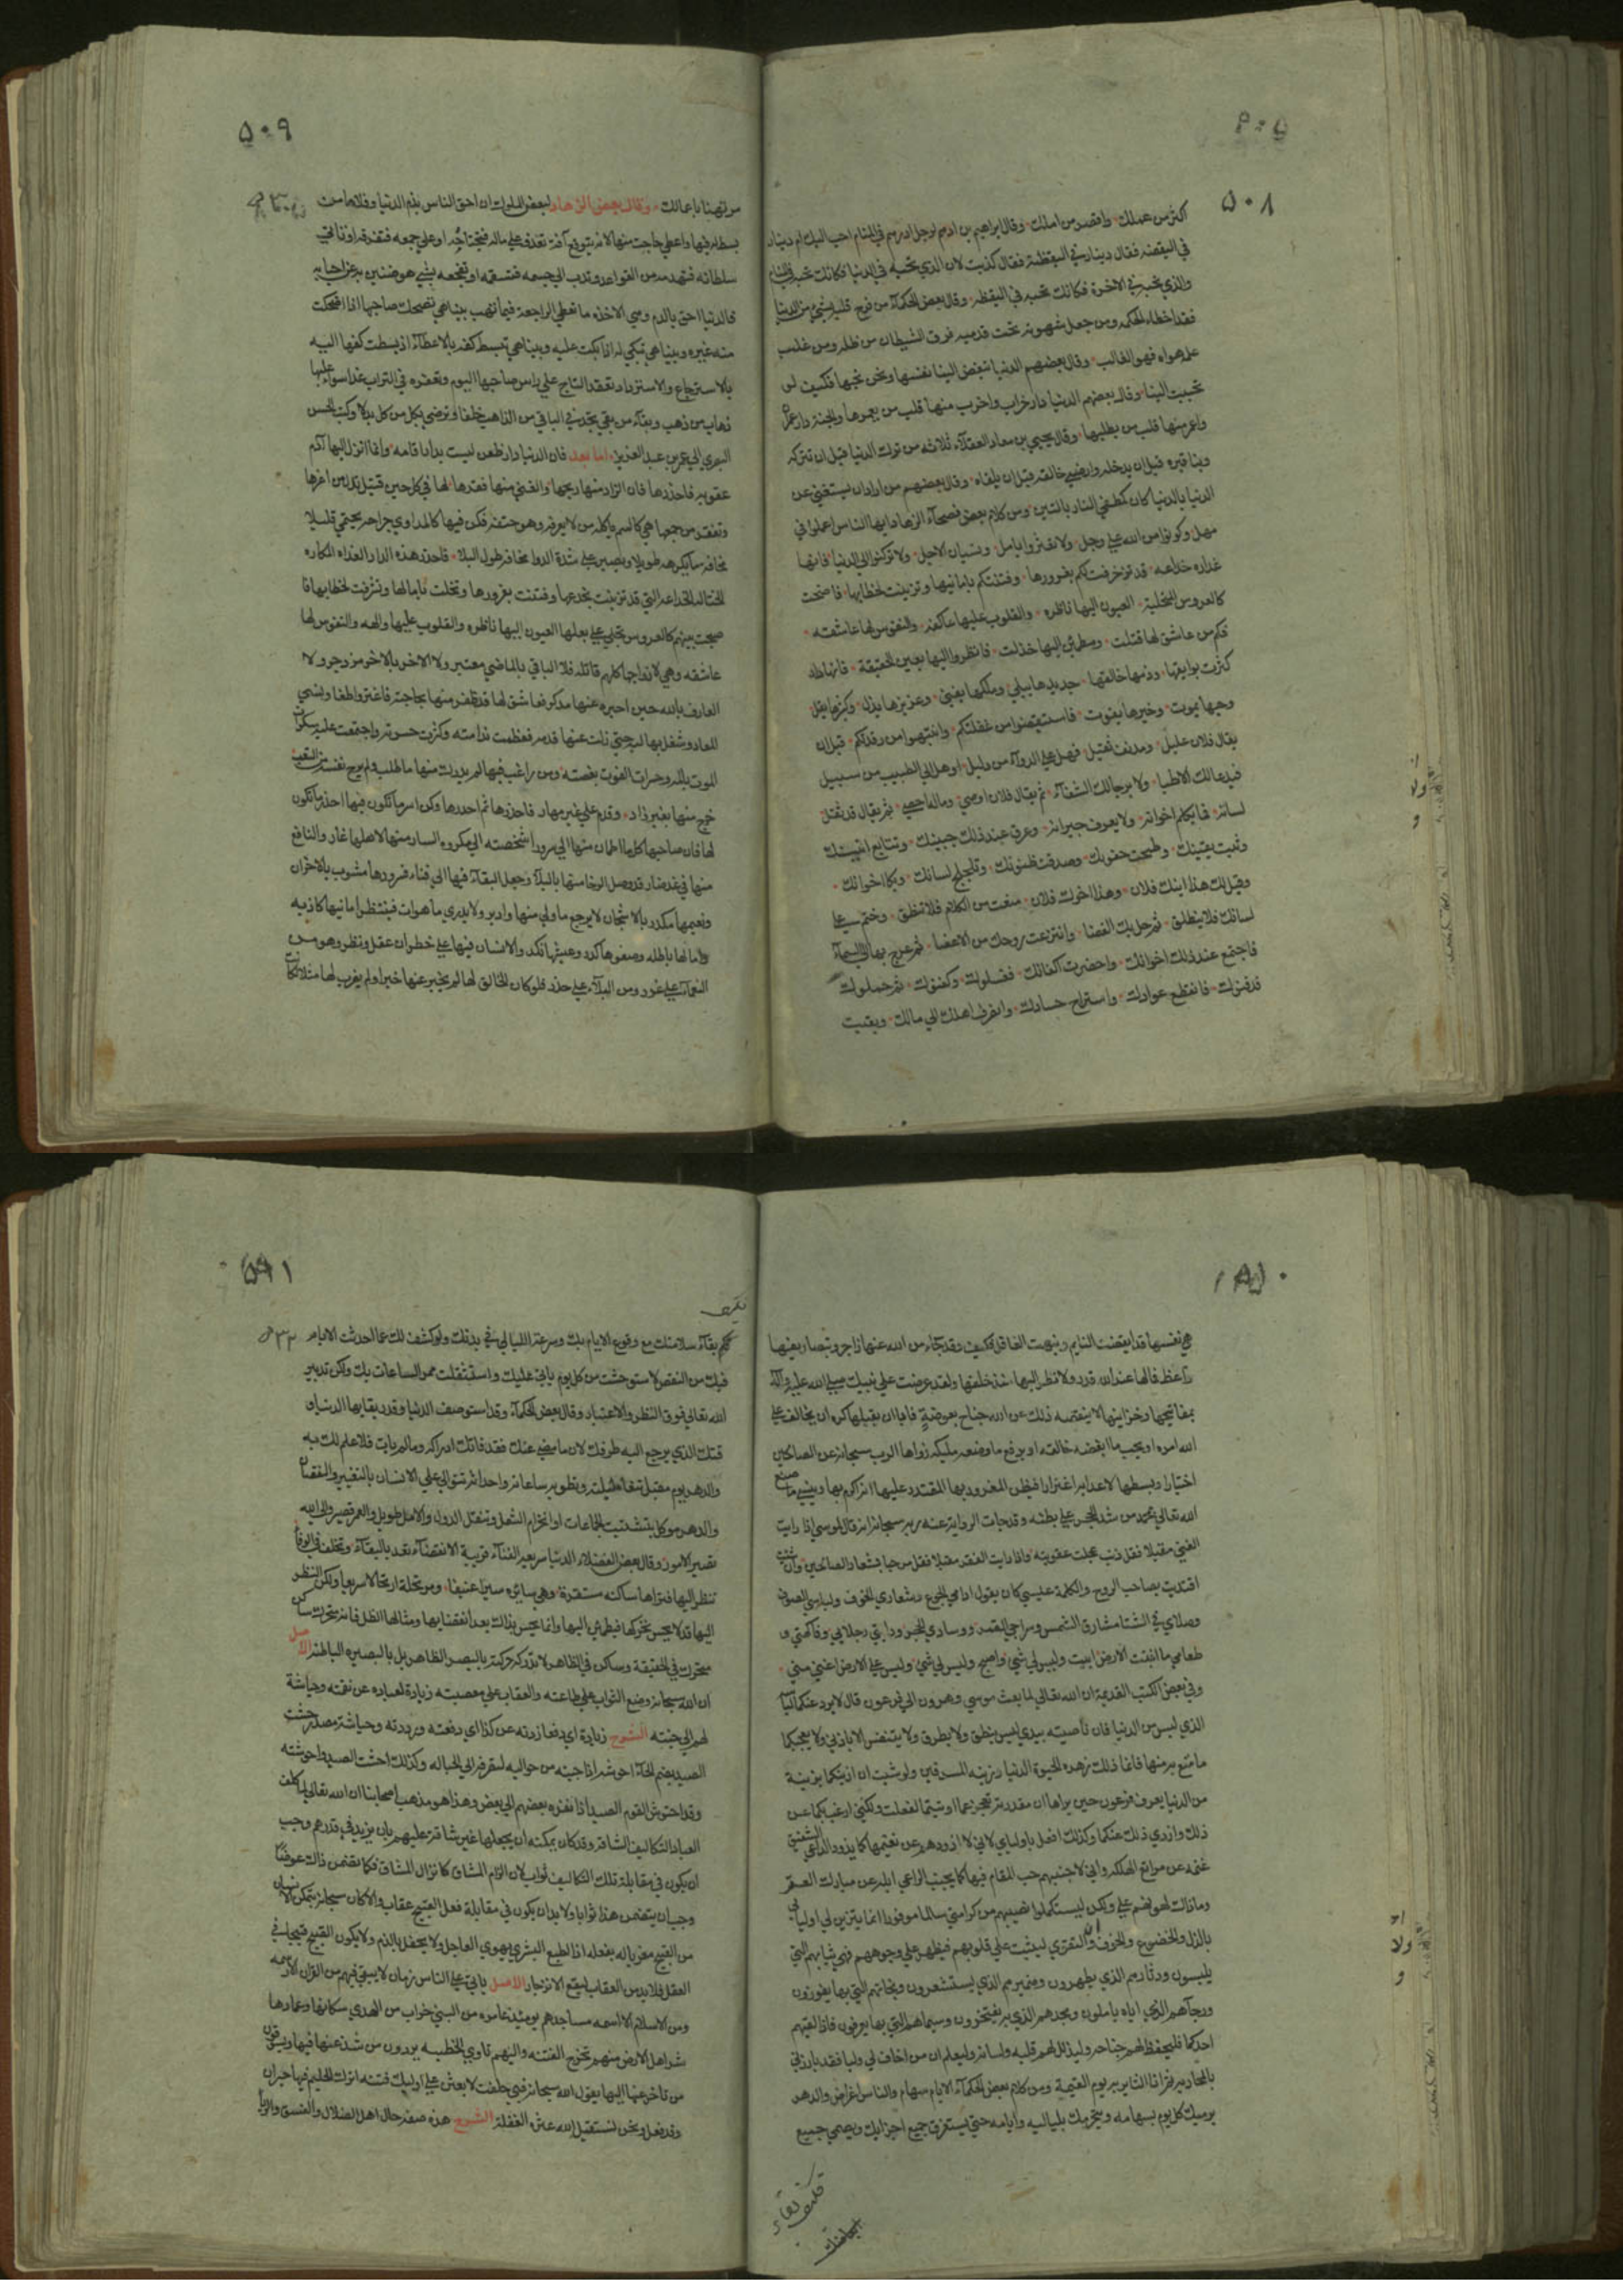 ٥٠٨
اكثر من عملك وافصر من املك وقال ابراهيم بن ادهم لرجل ادرهم في المنام احب اليك ام دينار
في اليقضه فقال دينار في اليقظة فقال كذبت لان الذي تحبه في الدنيا فكانك تحبه في المنام
والذي تحبه في الاخرة فكانك تحبه في اليقظه وقال بعض الحكماء من فرح قلبه بشيء من الدنيا
فقد اخطاء الحكمه ومن جعل شهوته تحت قدميه فرق الشيطان من ظله ومن غلب
علمه هواه فهو الغالب وقال بعضهم الدنيا تبغض الينا نفسها ونحن نحبها فكيف لو
تحببت الينا وقال بعضهم الدنيا دار خراب واخرب منها قلب من يعمرها والجنة دار عمران
واعمر منها قلب من يطلبها وقال يحيي بن معاد العقلاء ثلاثه من ترك الدنيا قبل ان تتركه
وبنا قبره قبل ان يدخله وارضي خالقه قبل ان يلقاه وقال بعضهم من اراد ان يستغني عن
الدنيا بالدنيا كان كمطفي النار بالتبن ومن كلام بعض فصحاء الزهاد ايها الناس اعملوا في
مهل وكونوا من الله علي وجل ولا تغتروا بالامل ونسيان الاجل ولا تركنوا الي الدنيا فانها
غداره خداعه قد تزخرفت لكم بغرورها وفتنتكم بامانيها وتزينت لخطابها فاضحت
كالعروس المتجلية العيون اليها ناظره والقلوب عليها عاكفه والنفوس لها عاشقه
فكم من عاشق لها قتلت ومطمئن اليها خذلت فانظروا اليها بعين الحقيقة فانها دار
كثرت بوايقها وذمها خالقها جديدها يبلي وملكها يفني وعزيزها يذل وكثيرها يقل
وحيها يموت وخيرها يفوت فاستيقضوا من غفلتكم وانتبهوا من رقدتكم قبل ان
يقال فلان عليل ومدنف ثقيل فهل علي الدواء من دليل او هل الي الطبيب من سبيل
فيدعا لك الاطبا ولا يرجا لك الشفاء ثم يقال فلان اوصي وماله احصي ثم يقال قد ثقل
لسانه فما يكلم اخوانه ولا يعرف جيرانه وعرق عند ذلك جبينك وتتابع انينك
وثبت يقينك وطمحت جفونك وصدقت ظنونك وتلجلج لسانك وبكا اخوانك
وقيل لك هذا ابنك فلان وهذا اخوك فلان منعت من الكلام فلا تنطق وختم علي
لسانك فلا ينطلق ثم حل بك القضا وانتزعت روحك من الاعضا ثم عرج بها الي السماء
فاجتمع عند ذلك اخوانك واحضرت اكفانك فغسلوك وكفنوك ثم حملوك
فدفنوك فانقطع عوادك واستراح حسادك وانصرف اهلك الي مالك وبقيت
٥٠٩
مرتهنا باعمالك وقال بعض الزهاد لبعض الملوك ان احق الناس بذم الدنيا وقلاها من
بسط له فيها واعطي حاجته منها لانه يتوقع آفة تغدو علي ماله فتجتاحه او علي جمعه فتفرقه او تاتي
سلطانه فتهدمه من القواعد او تدب الي جسمه فتسقمه او تفجعه بشي هو ضنين به من احبابه
فالدنيا احق بالذم وهي الاخذه ما تعطي الراجعة فيما تهب بينا هي تضحك صاحبها اذا اضحكت
منه غيره وبينا هي تبكي له اذا بكت عليه وبينا هي تبسط كفه بالاعطاء اذ بسطت كفها اليه
بالاسترجاع والاسترداد تعقد التاج علي راس صاحبها اليوم وتعفره في التراب غدا سواء عليها
ذهاب من ذهب وبقاء من بقي تجد في الباقي من الذاهب خلفا وترضي بكل من كل بدلا وكتب الحسن
البصري الي عمر بن عبد العزيز اما بعد فان الدنيا دار ظعن ليست بدار اقامه وانما انزل اليها آدم
عقوبه فاحذرها فان الزاد منها ربحها والغني منها فقرها لها في كل حين قتيل تذل من اعزها
وتفقر من جمعها هي كالسم ياكله من لا يعرفه وهو حتفه فكن فيها كالمداوي جراحه يحتمي قليلا
مخافة ما يكره طويلا ويصبر علي شدة الدوا مخافة طول البلا فاحذر هذه الدار الغداره المكاره
الختاله الخداعه التي قد تزينت بخدعها وفتنت بغرورها وتحلت بامالها وتشرفت لخطابها فا
صبحت بينهم كالعروس تجلي علي بعلها العيون اليها ناظره والقلوب عليها والهه والنفوس لها
عاشقه وهي لازواجها كلهم قاتله فلا الباقي بالماضي معتبر ولا الاخر بالاخر مزدجر ولا
العارف بالله حين اخبره عنها مدكر فعاشق لها قد ظفر منها بحاجته فاغتر وطغا ونسي
المعاد وشغل بها لبه حتي زلت عنها قدمه فعظمت ندامته وكثرت حسرته واجتمعت عليه سكرات
الموت بالمه وحسرات الفوت بغصته ومن راغب فيها لم يدرك منها ما طلب ولم يرح نفسه من التعب
خرج منها بغير زاد وقدم علي غير مهاد فاحذرها ثم احذرها وكن اسر ما تكون فيها احذر ما تكون
لها فان صاحبها كلما اطمان منها الي سرور اشخصته الي مكروه السار منها لاهلها غار والنافع
منها في غد ضار قد وصل الرخا منها بالبلاء وجعل البقاء فيها الي فناء فسرورها مشوب بالاحزان
ونعيمها مكدر بالاشجان لا يرجع ما ولي منها وادبر ولا يدري ما هو ات فينتظر امانيها كاذبه
وامالها باطله وصفوها كدر وعيشها نكد والانسان فيها علي خطر ان عقل ونظر وهو من
النعماء علي غرور ومن البلاء علي حذر فلو كان الخالق لها لم يخبر عنها خبرا ولم يضرب لها مثلا لكانت
٥١٠
هي نفسها قد ايقضت النايم ونبهت الغافل فكيف وقد جاء من الله عنها زاجر وبتصاريفها
واعظ فما لها عند الله قدر ولا نظر اليها منذ خلقها ولقد عرضت علي نبيك صلي الله عليه وآله
بمفاتيحها وخزاينها لا ينقصه ذلك عند الله جناح بعوضة فابا ان يقبلها كره ان يخالف علي
الله امره او يحب ما ابغضه خالقه او يرفع ما وضعه مليكه زواها الرب سبحانه عن الصالحين
اختيارا وبسطها لاعدايه اغترارا فيظن المغرور بها المقتدر عليها انه اكرم بها وينسي ما صنع
الله تعالي بمحمد من شد الحجر علي بطنه وقد جات الرواية عنه عن ربه سبحانه انه قال لموسي اذا رايت
الغني مقبلا فقل ذنب عجلت عقوبته واذا رايت الفقر مقبلا فقل مرحبا بشعار الصالحين وان شئت
اقتديت بصاحب الروح والكلمة عيسي كان يقول ادامي الجوع وشعاري الخوف ولباسي الصوف
وصلاي في الشتا مشارق الشمس وسراجي القمر ووسادي الحجر ودابتي رجلاي وفاكهتي و
طعامي ما انبتت الارض ابيت وليس لي شي واصبح وليس لي شي وليس علي الارض اغني مني
وفي بعض الكتب القديمة ان الله تعالي لما بعث موسي وهرون الي فرعون قال لا يردعنكما لباسه
الذي لبس من الدنيا فان ناصيته بيدي ليس ينطق ولا يطرف ولا يتنفس الا باذني ولا يعجبكما
ما متع به منها فانما ذلك زهرة الحيوة الدنيا وزينة المسرفين ولو شيت ان ازينكما بزينة
من الدنيا يعرف فرعون حين يراها ان مقدرته تعجز عما اوتيتما لفعلت ولكني ارغب بكما عن
ذلك وازوي ذلك عنكما وكذلك افعل باوليايي لاني لا ازودهم عن نعيمها كما يذود الراعي الشفيق
غنمه عن مراتع الهلكه واني لاجنبهم حب المقام فيها كما يجنب الراعي ابله عن مبارك العر
وما ذاك لهوانهم علي ولكن ليستكملوا نصيبهم من كرامتي سالما موفورا انما يتزين لي اوليايي
بالذل والخضوع والخوف وان التقوي لتثبت علي قلوبهم فيظهر علي وجوههم فهي ثيابهم التي
يلبسون ودثارهم الذي يظهرون وضميرهم الذي يستشعرون ونجاتهم التي بها يفوزون
ورجآهم الذي اياه ياملون ومجدهم الذي به يفتخرون وسيماهم التي بها يعرفون فاذا لقيهم
احدكما فليخفظ لهم جناحه وليذلل لهم قلبه ولسانه وليعلم ان من اخاف لي وليا فقد بارزني
بالمحاربه ثم انا الثاير به يوم القيمة ومن كلام بعض الحكماء الايام سهام والناس اغراض والدهر
يرميك كل يوم بسهامه ويتخرمك بلياليه وايامه حتي يستغرق جميع اجزايك ويصمي جميع
٥١١
فكم بقاء سلامتك مع وقوع الايام بك وسرعة الليالي في بدنك ولو كشف لك عما احدثت الايام
فيك من النقص لاستوحشت من كل يوم ياتي عليك واستثقلت ممر الساعات بك ولكن تدبير
الله تعالي فوق النظر والاعتبار وقال بعض الحكماء وقد استوصف الدنيا وقدر بقايها الدنيا و
قتك الذي يرجع اليه طرفك لان ما مضي عنك فقد فاتك ادراكه وما لم يات فلا علم لك به
والدهر يوم مقبل تنعاه ليلته وتطويه ساعاته واحداثه تتوالي علي الانسان بالتغيير والنقصان
والدهر موكل بتشتيت الجماعات وانخرام الشمل وتنقل الدول والامل طويل والعمر قصير والي الله
تصير الامور وقال بعض الفضلاء الدنيا سريعة الفناء قريبة الانقضاء تعد بالبقاء وتخلف في الوفاء
تنظر اليها فتراها ساكنه مستقرة وهي سايره سيرا عنيفا ومرتحلة ارتحالا سريعا ولكن الناظر
اليها قد لا يحس بحركتها فيطمئن اليها وانما يحس بذلك بعد انقضايها ومثالها الظل فانه متحرك ساكن
متحرك في الحقيقة وساكن في الظاهر لا تدرك حركته بالبصر الظاهر بل بالبصيره الباطنه الاصل
ان الله سبحانه وضع الثواب علي طاعته والعقاب علي معصيته زيادة لعباده عن نقمته وحياشة
لهم الي جنته الشرح زيادة اي دفعا زدته عن كذا اي دفعته ورددته وحياشة مصدر حشت
الصيد بضم الحاء احوشه اذا جيته من حواليه لتصرفه الي الحباله وكذلك احشت الصيد واحوشته
وقد احتوش القوم الصيد اذا نفره بعضهم الي بعض وهذا هو مذهب اصحابنا ان الله تعالي لما كلف
العباد التكاليف الشاقه وقد كان يمكنه ان يجعلها غير شاقة عليهم بان يزيد في قدرهم وجب
ان يكون في مقابلة تلك التكاليف ثواب لان الزام المشاق كانزال المشاق فكما يتضمن ذلك عوضا
وجب ان يتضمن هذا ثوابا ولا بد ان يكون في مقابلة فعل القبيح عقاب والا كان سبحانه يمكن الانسان
من القبيح مغريا له بفعله اذ الطبع البشري يهوي العاجل ولا يحفل بالذم ولا يكون القبيح قبيحا في
العقل فلا بد من العقاب ليقع الانزجار الاصل ياتي علي الناس زمان لا يبقي فيهم من القران الا رسمه
ومن الاسلام الا اسمه مساجدهم يومئذ عامره من البني خراب من الهدي سكانها وعمارها
شر اهل الارض منهم تخرج الفتنه واليهم تاوي الخطيه يردون من شذ عنها فيها ويسوقون
من تاخر عنها اليها يقول الله سبحانه فبي حلفت لابعثن علي اوليك فتنه اترك الحليم فيها حيران
وقد فعل ونحن نستقيل الله عثرة الغفلة الشرح هذه صفة حال اهل الضلال والفسق والريا